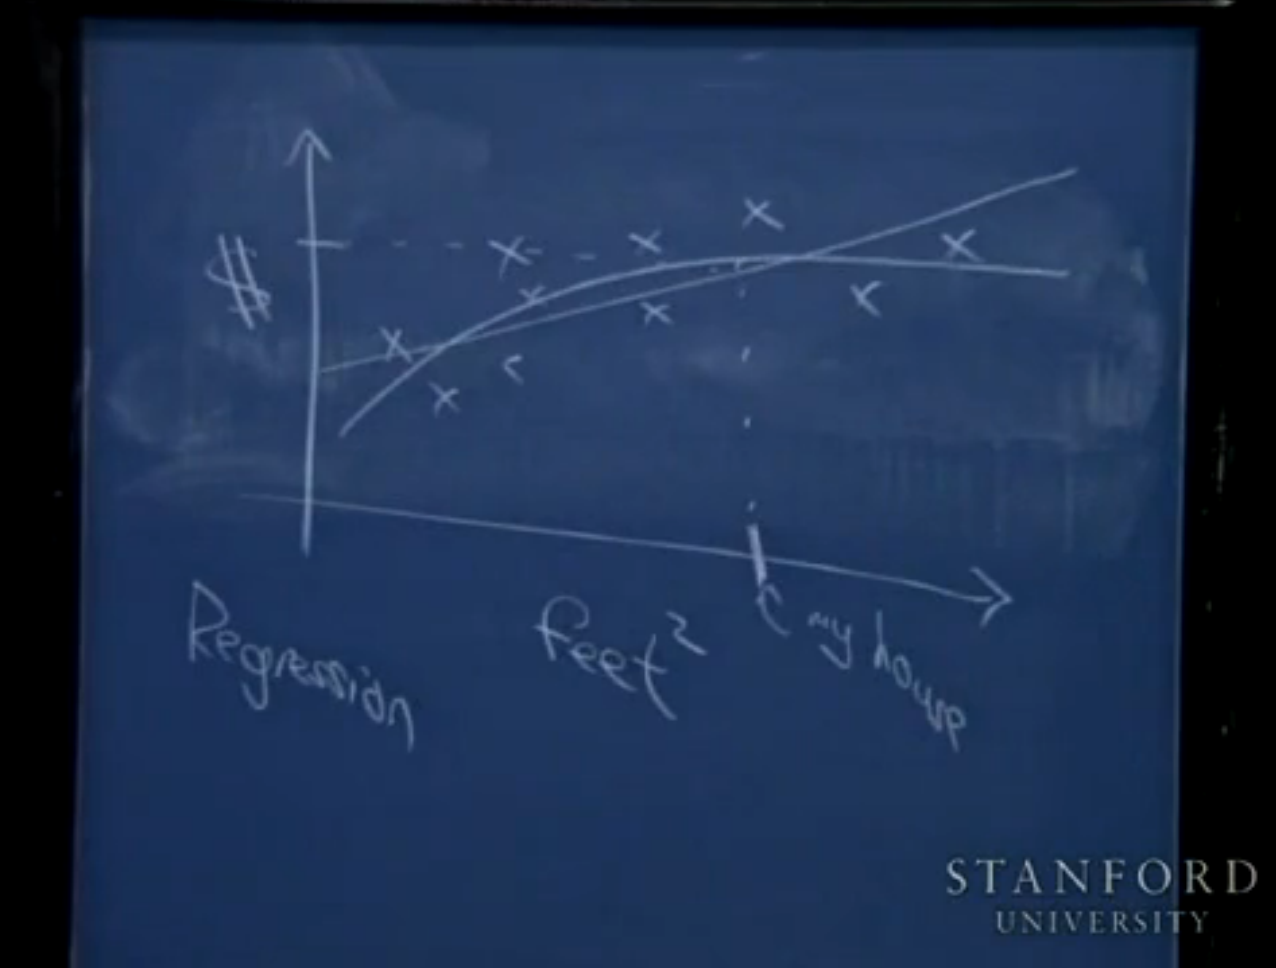 $
Regression
feet²
my house
STANFORD
UNIVERSITY